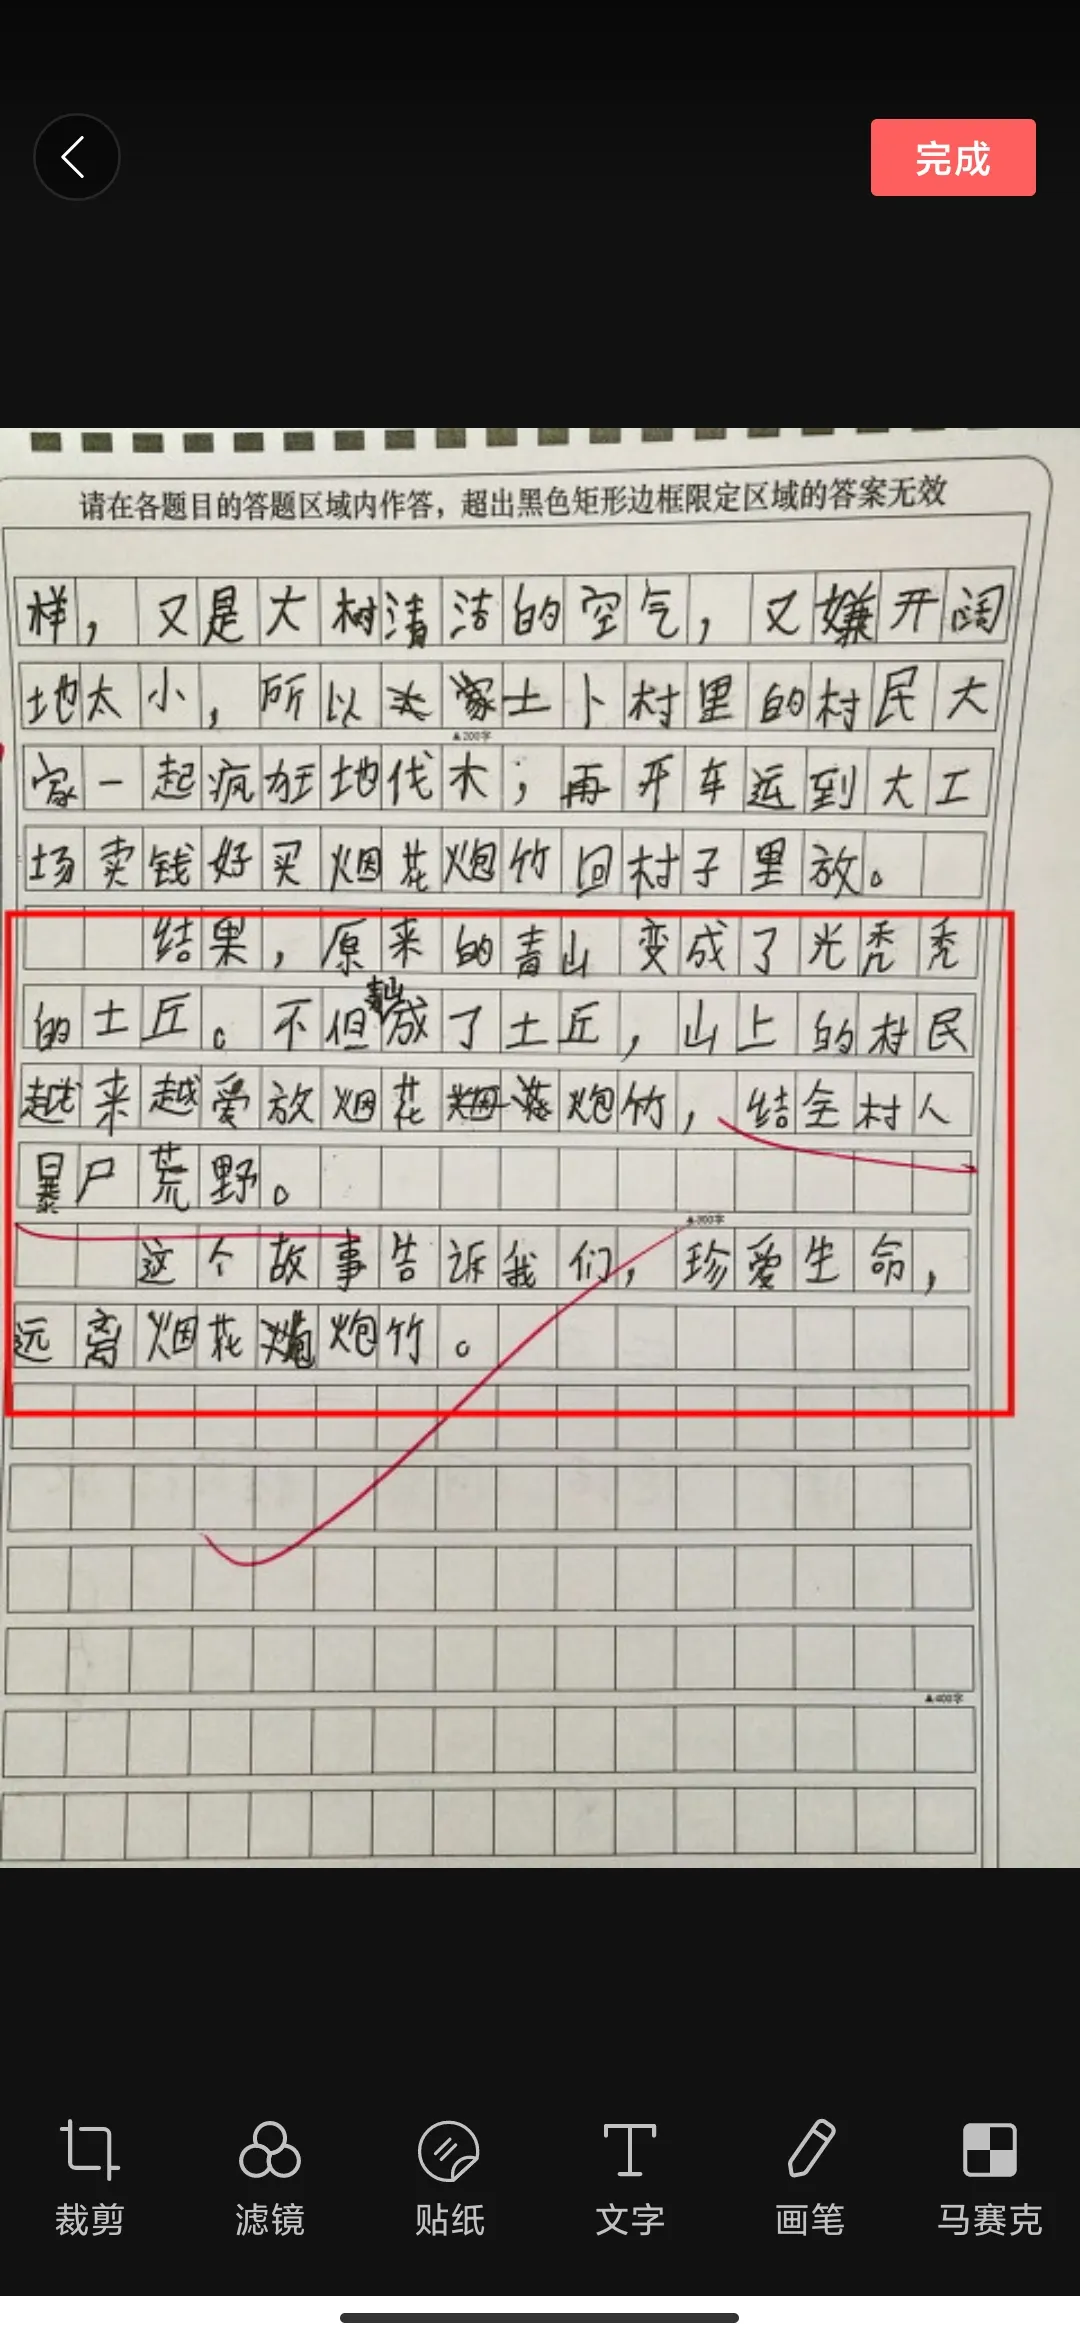 完成
请在各题目的答题区域内作答，超出黑色矩形边框限定区域的答案无效
样，又是大树清洁的空气，又嫌开阔
地太小，所以土卜村里的村民大
▲200字
家一起疯狂地伐木；再开车运到大工
场卖钱好买烟花炮竹回村子里放。
结果，原来的青山变成了光秃秃
的土丘。不但青山成了土丘，山上的村民
越来越爱放烟花炮竹，结全村人
暴尸荒野。
▲300字
这个故事告诉我们，珍爱生命，
远离烟花炮竹。
▲400字
裁剪 滤镜 贴纸 文字 画笔 马赛克